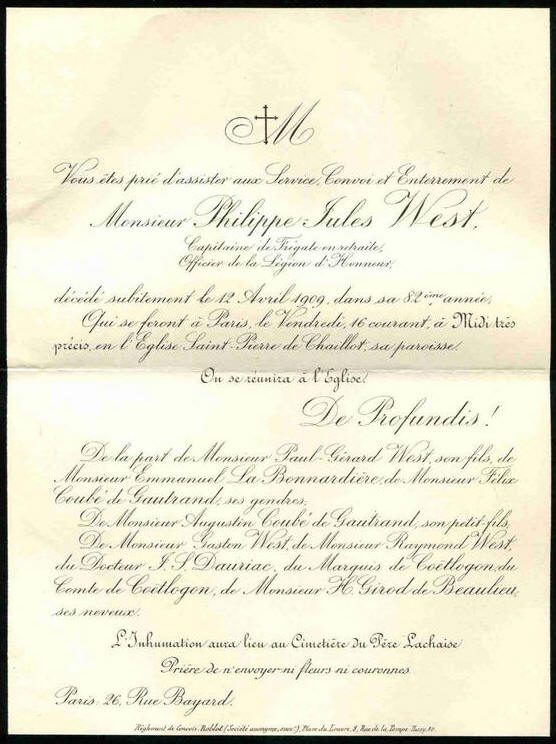 M
Vous êtes prié d'assister aux Service, Convoi et Enterrement de
Monsieur Philippe-Jules West,
Capitaine de Frégate en retraite,
Officier de la Légion d'Honneur,
décédé subitement le 12 Avril 1909, dans sa 82ème année,
Qui se feront à Paris, le Vendredi, 16 courant, à Midi très
précis, en l'Eglise Saint-Pierre de Chaillot, sa paroisse.
On se réunira à l'Eglise.
De Profundis !
De la part de Monsieur Paul-Gérard West, son fils, de
Monsieur Emmanuel La Bonnardière, de Monsieur Félix
Coubé de Gautrand, ses gendres,
De Monsieur Augustin Coubé de Gautrand, son petit-fils,
De Monsieur Gaston West, de Monsieur Raymond West,
du Docteur J. S. Dauriac, du Marquis de Coëtlogon, du
Comte de Coëtlogon, de Monsieur H. Girod de Beaulieu,
ses neveux.
L'Inhumation aura lieu au Cimetière du Père Lachaise
Prière de n'envoyer ni fleurs ni couronnes
Paris, 26, Rue Bayard.
Règlement de Convois, Roblot (Société anonyme, succr), Place du Louvre, 8, Rue de la Pompe